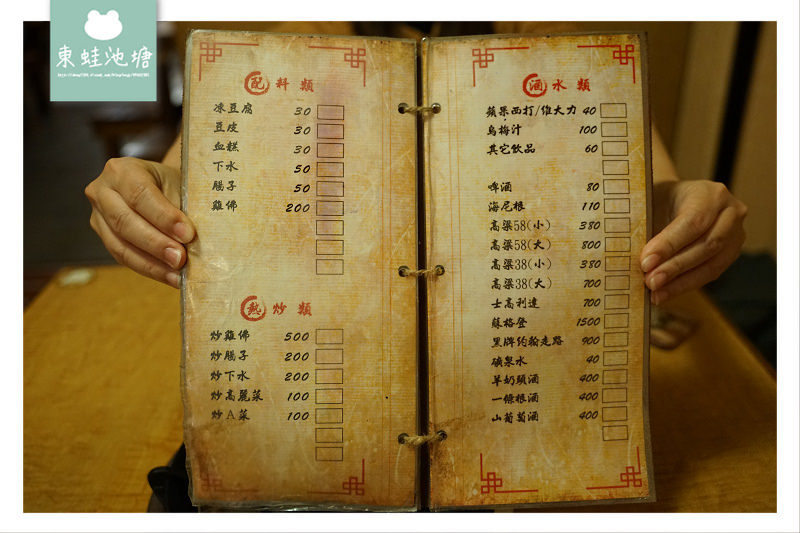 東蛙池塘
配料類
凍豆腐 30
豆皮 30
血糕 30
下水 50
腸子 50
雞佛 200
熱炒類
炒雞佛 500
炒腸子 200
炒下水 200
炒高麗菜 100
炒A菜 100
酒水類
蘋果西打/維大力 40
烏梅汁 100
其它飲品 60
啤酒 80
海尼根 110
高梁58(小) 380
高梁58(大) 800
高梁38(小) 380
高梁38(大) 700
士高利達 700
蘇格登 1500
黑牌約翰走路 900
礦泉水 40
羊奶頭酒 400
一條根酒 400
山葡萄酒 400